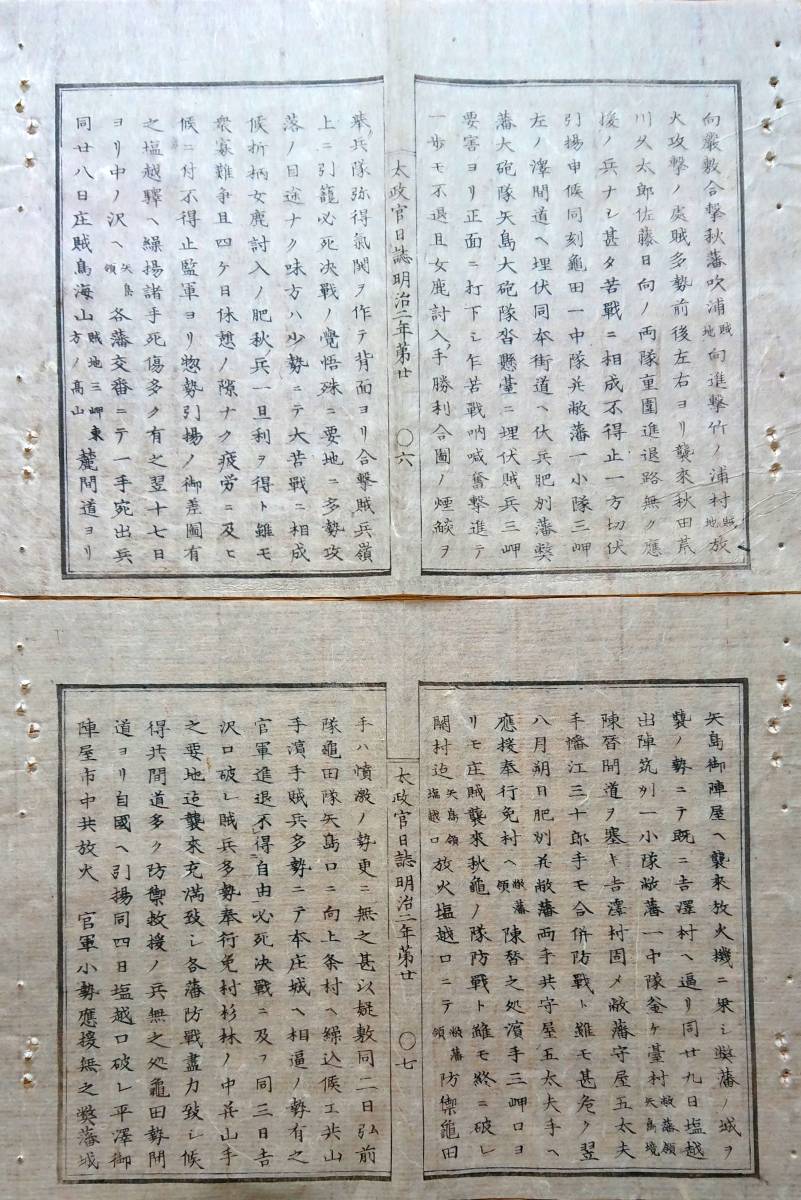 向嚴敷合撃秋藩吹浦賊地向進撃竹ノ浦村賊地放
火攻撃ノ処賊多勢前後左右ヨリ襲來秋田荒
川久太郎佐藤日向ノ両隊重圍進退路無ク應
接ノ兵ナシ甚タ苦戰ニ相成不得止一方切伏
引揚申候同刻龜田一中隊兵敝藩一小隊三岬
左ノ澤間道ヘ埋伏同夲街道ヘ伏兵肥別藩弊
藩大砲隊矢島大砲隊沓懸臺ニ埋伏賊兵三岬
要害ヨリ正面ニ打下シ乍苦戰吶喊奮撃進テ
一歩モ不退且女鹿討入ノ手勝利合圖ノ煙焔ヲ
太政官日誌明治二年第廿 〇六
挙ノ兵隊弥得氣鬨ヲ作テ背面ヨリ合撃賊兵嶺
上ニ引籠必死決戰ノ覺悟殊ニ要地ニ多勢攻
落ノ目途ナク味方ハ少勢ニテ大苦戰ニ相成
候折柄女鹿討入ノ肥秋ノ兵一旦利ヲ得ト雖モ
衆寡難爭且四ケ日休憩ノ隙ナク疲労ニ及ヒ
候ニ付不得止監軍ヨリ惣勢引揚ノ御差圖有
之塩越驛ヘ繰揚諸手死傷多ク有之翌十七日
ヨリ中ノ沢ヘ矢島領各藩交番ニテ一手宛出兵
同廿八日庄賊鳥海山賊地三岬東方ノ高山麓間道ヨリ
矢島御陣屋ヘ襲來放火機ニ乗シ弊藩ノ城ヲ
襲ノ勢ニテ既ニ吉澤村ヘ逼リ同廿九日塩越
出陣筑州一小隊敝藩一中隊釜ケ臺村敝藩領矢島境
陳替間道ヲ塞キ吉澤村固メ敝藩守屋五太夫
手幡江三十郎手モ合併防戰ト雖モ甚危ク翌
八月朔日肥別兵敝藩両手共守屋五太夫手ヘ
應援奉行免村ヘ敝藩領陳替之処濱手三岬口ヨ
リモ庄賊襲來秋龜ノ隊防戰ト雖モ終ニ破レ
関村迄矢島領塩越口放火塩越口ニテ敝藩領防禦龜田
太政官日誌明治二年第廿 〇七
手ハ憤激ノ勢更ニ無之甚以疑敷同二日弘前
隊龜田隊矢島口ニ向上条村ヘ繰込候エ共山
手濱手賊兵多勢ニテ本庄城ヘ相逼ノ勢有之
官軍進退不得自由必死決戰ニ及フ同三日吉
沢口破レ賊兵多勢奉行免村杉林ノ中并山手
之要地迄襲來充滿致シ各藩防戰盡力致シ候
得共間道多ク防禦救援ノ兵無之処龜田勢間
道ヨリ自國ヘ引揚同四日塩越口破レ平澤御
陣屋市中共放火 官軍小勢應援無之弊藩城